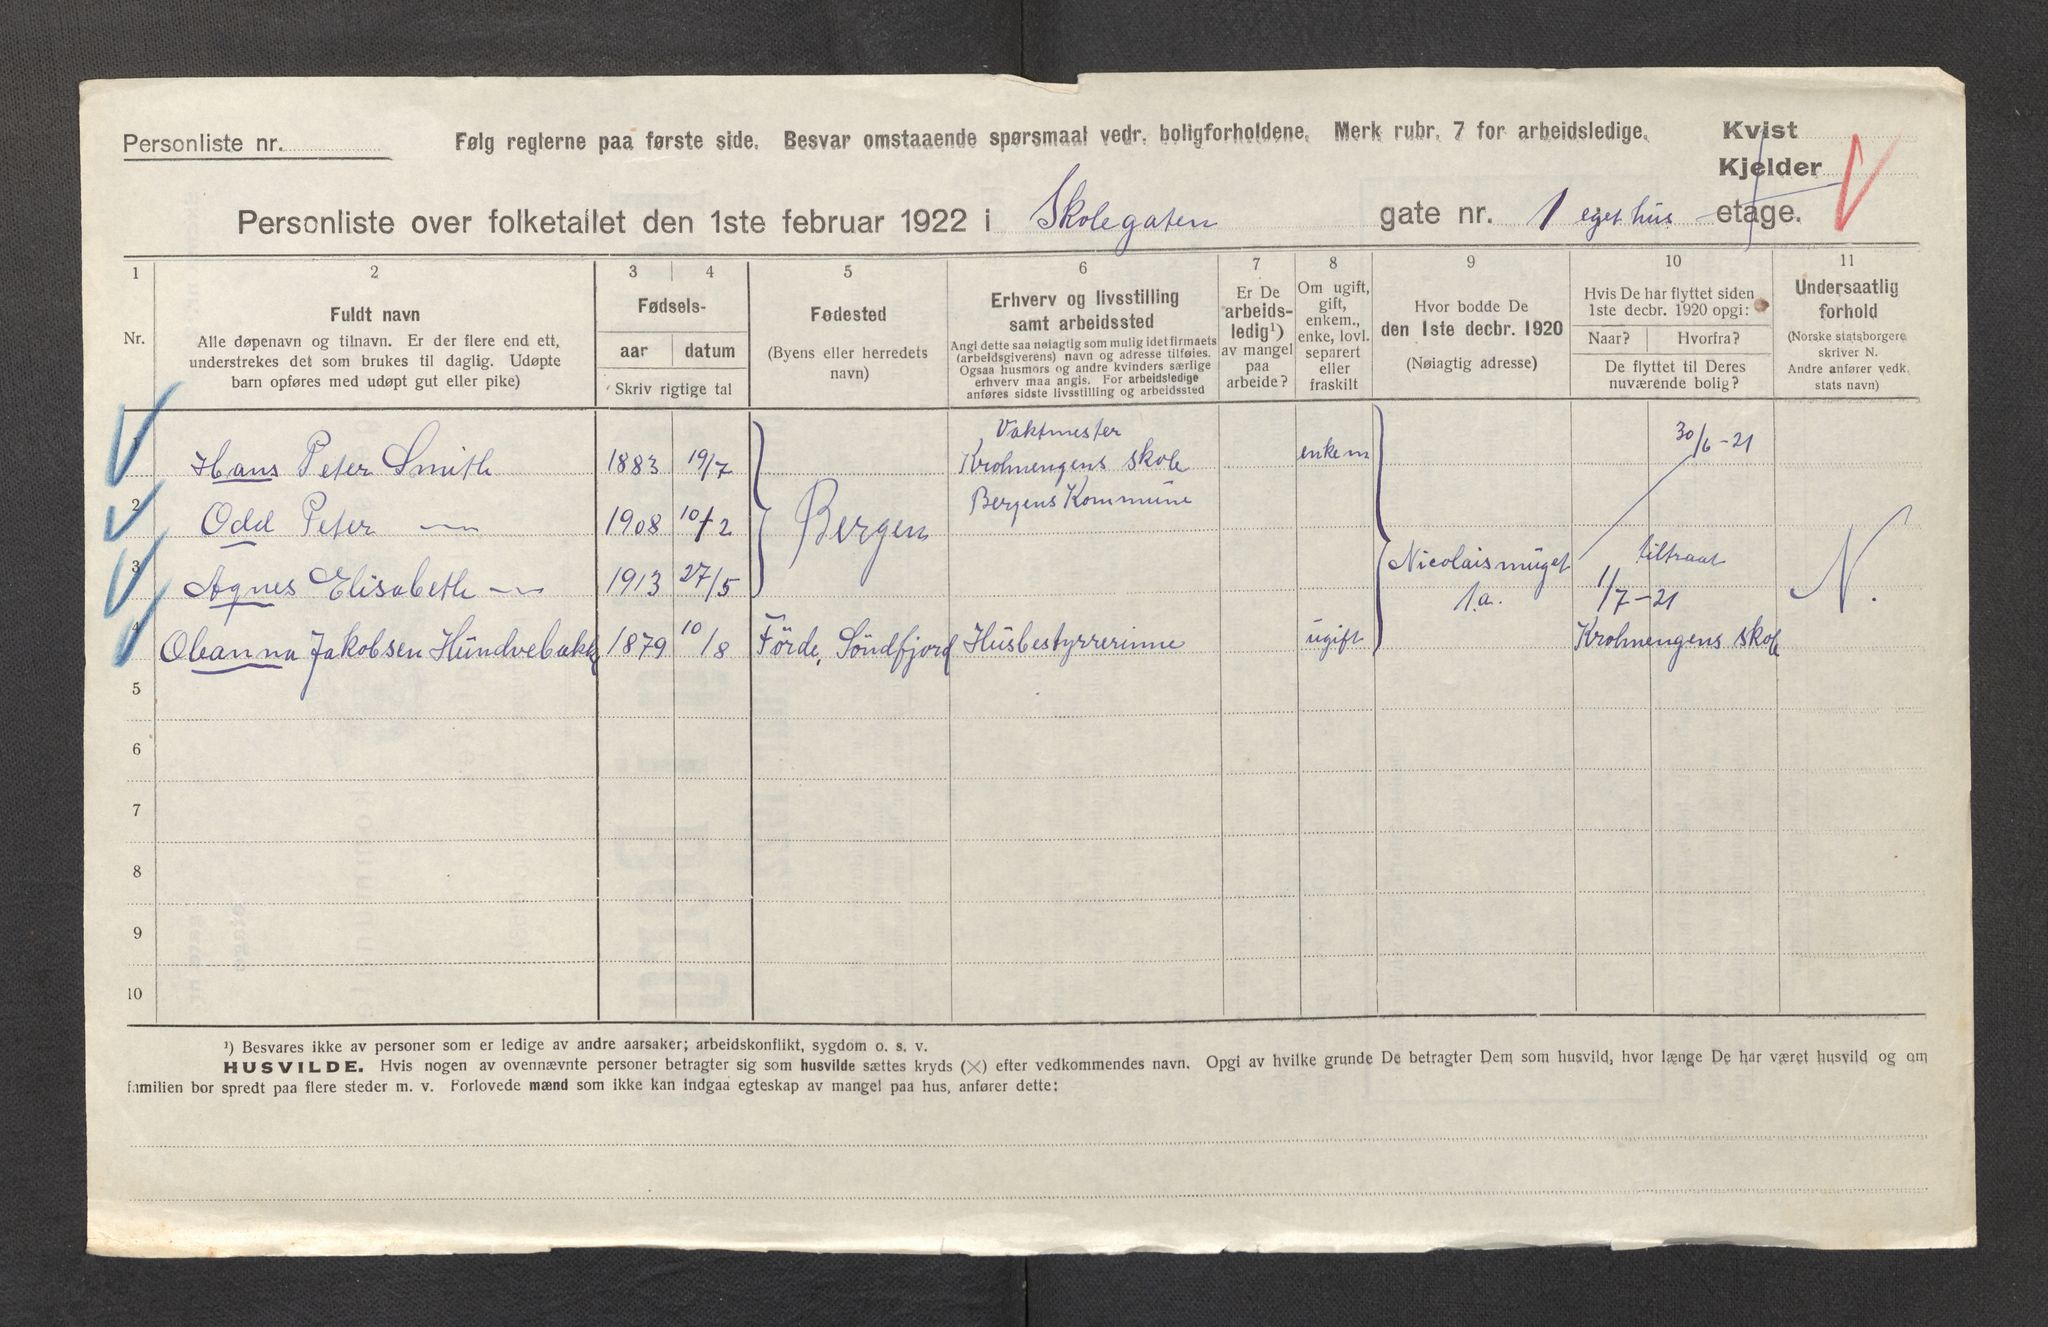 Personliste nr.
Følg reglerne paa første side. Besvar omstaaende spørsmaal vedr. boligforholdene. Merk rubr. 7 for arbeidsledige.
Kvist
Kjelder
Personliste over folketallet den 1ste februar 1922 i Skolegaten gate nr. 1 eget hus etage.
1 2 3 4 5 6 7 8 9 10 11
Nr.
Fuldt navn
Alle døpenavn og tilnavn. Er der flere end ett,
understrekes det som brukes til daglig. Udøpte
barn opføres med udøpt gut eller pike)
Fødsels-
aar datum
Skriv rigtige tal
Fødested
(Byens eller herredets
navn)
Erhverv og livsstilling
samt arbeidssted
Angi dette saa nøiagtig som mulig idet firmaets
(arbeidsgiverens) navn og adresse tilføies.
Ogsaa husmors og andre kvinders særlige
erhverv maa angis. For arbeidsledige
anføres sidste livsstilling og arbeidssted
Er De
arbeids-
ledig¹)
av mangel
paa
arbeide?
Om ugift,
gift,
enkem.,
enke, lovl.
separert
eller
fraskilt
Hvor bodde De
den 1ste decbr. 1920
(Nøiagtig adresse)
Hvis De har flyttet siden
1ste decbr. 1920 opgi:
Naar? Hvorfra?
De flyttet til Deres
nuværende bolig?
Undersaatlig
forhold
(Norske statsborgere
skriver N.
Andre anfører vedk.
stats navn)
1 Hans Peter Smith 1883 19/7 Vaktmester Krohnengens skole enkem 30/6-21
2 Odd Peter — 1908 10/2 Bergen Bergens Kommune
3 Agnes Elisabeth — 1913 27/5 Nicolaismuget 1a. tiltraat 1/7-21 N.
4 Oleanna Jakobsen Hundvebakke 1879 10/8 Førde, Søndfjord Husbestyrrerinne ugift Krohnengens skole
5
6
7
8
9
10
¹) Besvares ikke av personer som er ledige av andre aarsaker; arbeidskonflikt, sygdom o. s. v.
HUSVILDE. Hvis nogen av ovennævnte personer betragter sig som husvilde sættes kryds (×) efter vedkommendes navn. Opgi av hvilke grunde De betragter Dem som husvild, hvor længe De har været husvild og om
familien bor spredt paa flere steder m. v. Forlovede mænd som ikke kan indgaa egteskap av mangel paa hus, anfører dette: